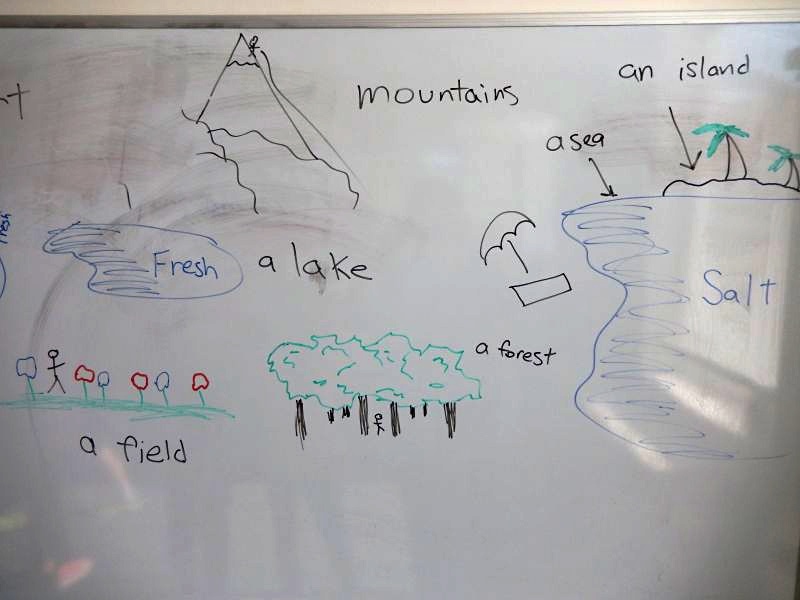 mountains
an island
a sea
Fresh
a lake
Salt
a forest
a field